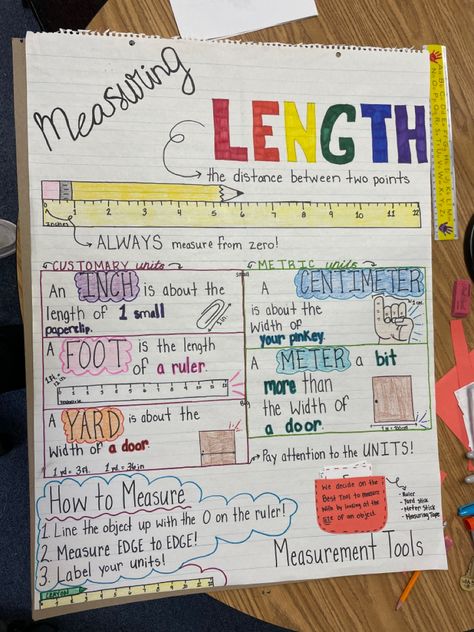 Measuring
LENGTH
the distance between two points
0 1 2 3 4 5 6 7 8 9 10 11 12
inches
ALWAYS measure from zero!
CUSTOMARY units
An INCH is about the
length of 1 small
paperclip.
A FOOT is the length
of a ruler.
A YARD is about the
width of a door.
1 yd = 3 ft. 1 yd = 36 in
small
Big
METRIC units
A CENTIMETER
is about the
width of
your pinkey.
A METER a bit
more than
the width of
a door.
Pay attention to the UNITS!
How to Measure
1. Line the object up with the 0 on the ruler!
2. Measure EDGE to EDGE!
3. Label your units!
We decide on the
Best Tool to measure
with by looking at the
size of an object.
- Ruler
- Yard Stick
- Meter Stick
- Measuring Tape
Measurement Tools